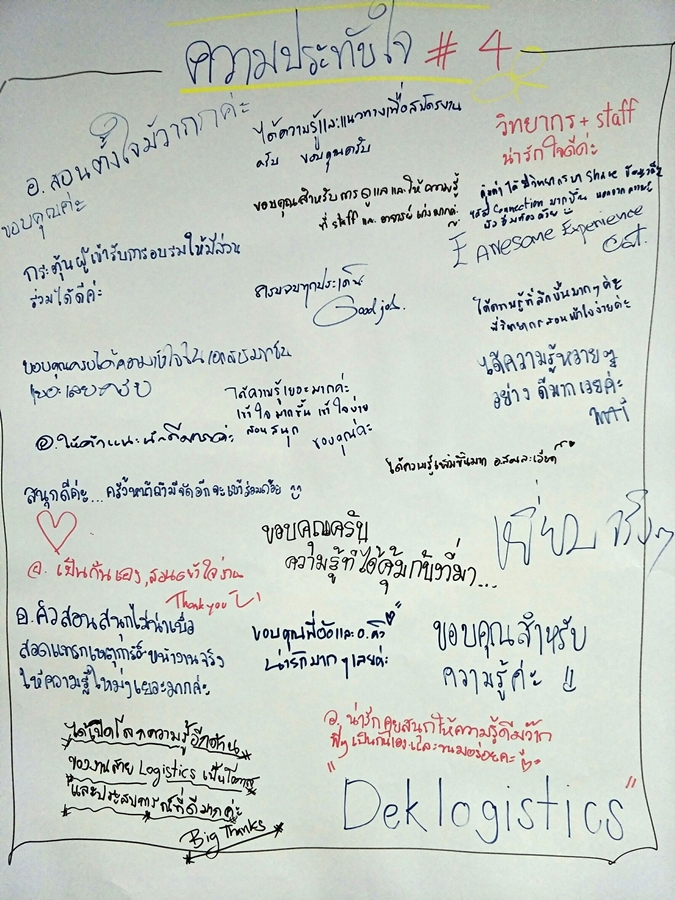 ความประทับใจ # 4
อ. สอนตั้งใจมั่วากกค่ะ
ขอบคุณค่ะ
ได้ความรู้และแนวทางเพื่อสมัครงาน
ครับ ขอบคุณครับ
วิทยากร + staff
น่ารักใจดีค่ะ
ขอบคุณสำหรับการดูแลและให้ความรู้
ที่ staff และ อาจารย์ เก่งมากค่ะ
Share
Connection มากขึ้น
Awesome Experience
Cat.
กระตุ้นผู้เข้ารับการอบรมให้มีส่วน
ร่วมได้ดีค่ะ
ครบจบทุกประเด็น
Good job.
ได้ความรู้ที่ลึกขึ้นมากๆค่ะ
พี่วิทยากรสอนเข้าใจง่ายค่ะ
ได้ความรู้หลายๆ
อย่าง ดีมากเลยค่ะ
เยอะเลยครับ
ได้ความรู้เยอะมากค่ะ
เข้าใจมากขึ้น เข้าใจง่าย
สอนสนุก ขอบคุณค่ะ
อ.ให้คำแนะนำดีมากค่ะ
ได้ความรู้เพิ่มขึ้นมาก อ.สอนละเอียด
สนุกดีค่ะ...ครั้งหน้าถ้ามีจัดอีกจะเข้าร่วมด้วย
ขอบคุณครับ
ความรู้ที่ได้คุ้มกับที่มา...
เยี่ยมจริงๆ
อ. เป็นกันเอง, สอนเข้าใจง่าย
Thank you
อ. คิวสอนสนุกไม่น่าเบื่อ
สอดแทรกเหตุการณ์หน้างานจริง
ให้ความรู้ใหม่ๆเยอะมากค่ะ
ขอบคุณพี่อ้อและอ.คิว
น่ารักมากๆเลยค่ะ
ขอบคุณสำหรับ
ความรู้ค่ะ !!
ได้เปิดโลกความรู้อีกด้าน
ของงานสาย Logistics เป็นโอกาส
และประสบการณ์ที่ดีมากค่ะ
Big Thanks
อ. น่ารักคุยสนุกให้ความรู้ดีมว๊าก
พี่ๆเป็นกันเองและขนมอร่อยค่ะ
"Deklogistics"